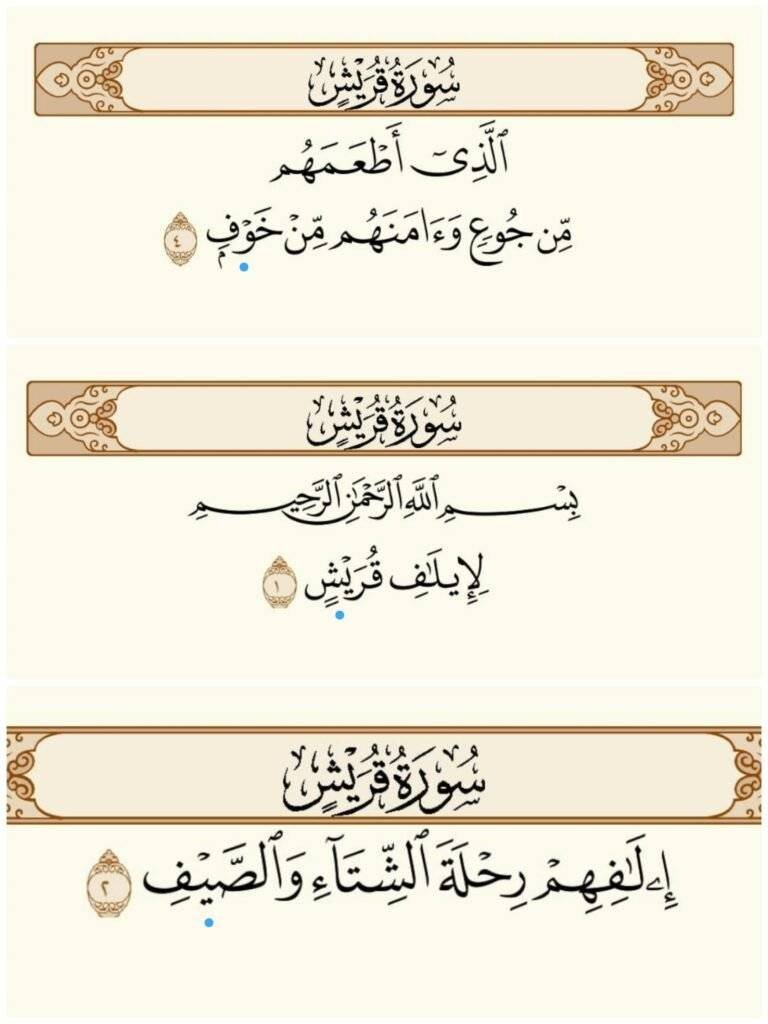 سُورَةُ قُرَيْشٍ
ٱلَّذِىٓ أَطْعَمَهُم
مِّن جُوعٍ وَءَامَنَهُم مِّنْ خَوْفٍۭ ٤
سُورَةُ قُرَيْشٍ
بِسْمِ ٱللَّهِ ٱلرَّحْمَٰنِ ٱلرَّحِيمِ
لِإِيلَٰفِ قُرَيْشٍ ١
سُورَةُ قُرَيْشٍ
إِۦلَٰفِهِمْ رِحْلَةَ ٱلشِّتَآءِ وَٱلصَّيْفِ ٢